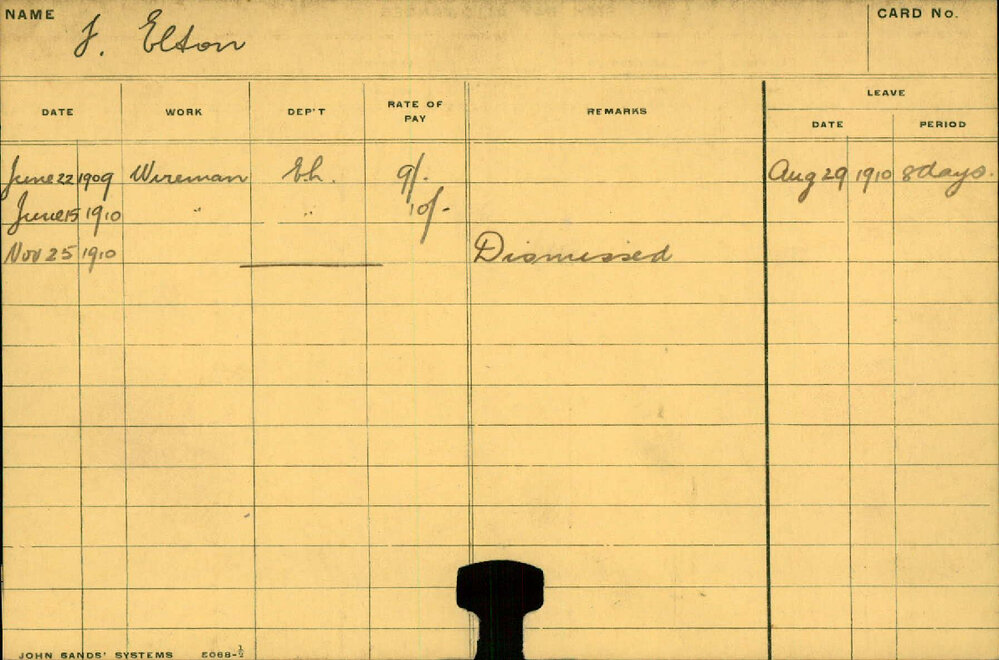 NAME J. Elton CARD No.
LEAVE
DATE WORK DEP'T RATE OF PAY REMARKS DATE PERIOD
June 22 1909 Wireman E.L. 9/- Aug 29 1910 8 days.
June 15 1910 " " 10/-
Nov 25 1910 Dismissed
JOHN SANDS' SYSTEMS